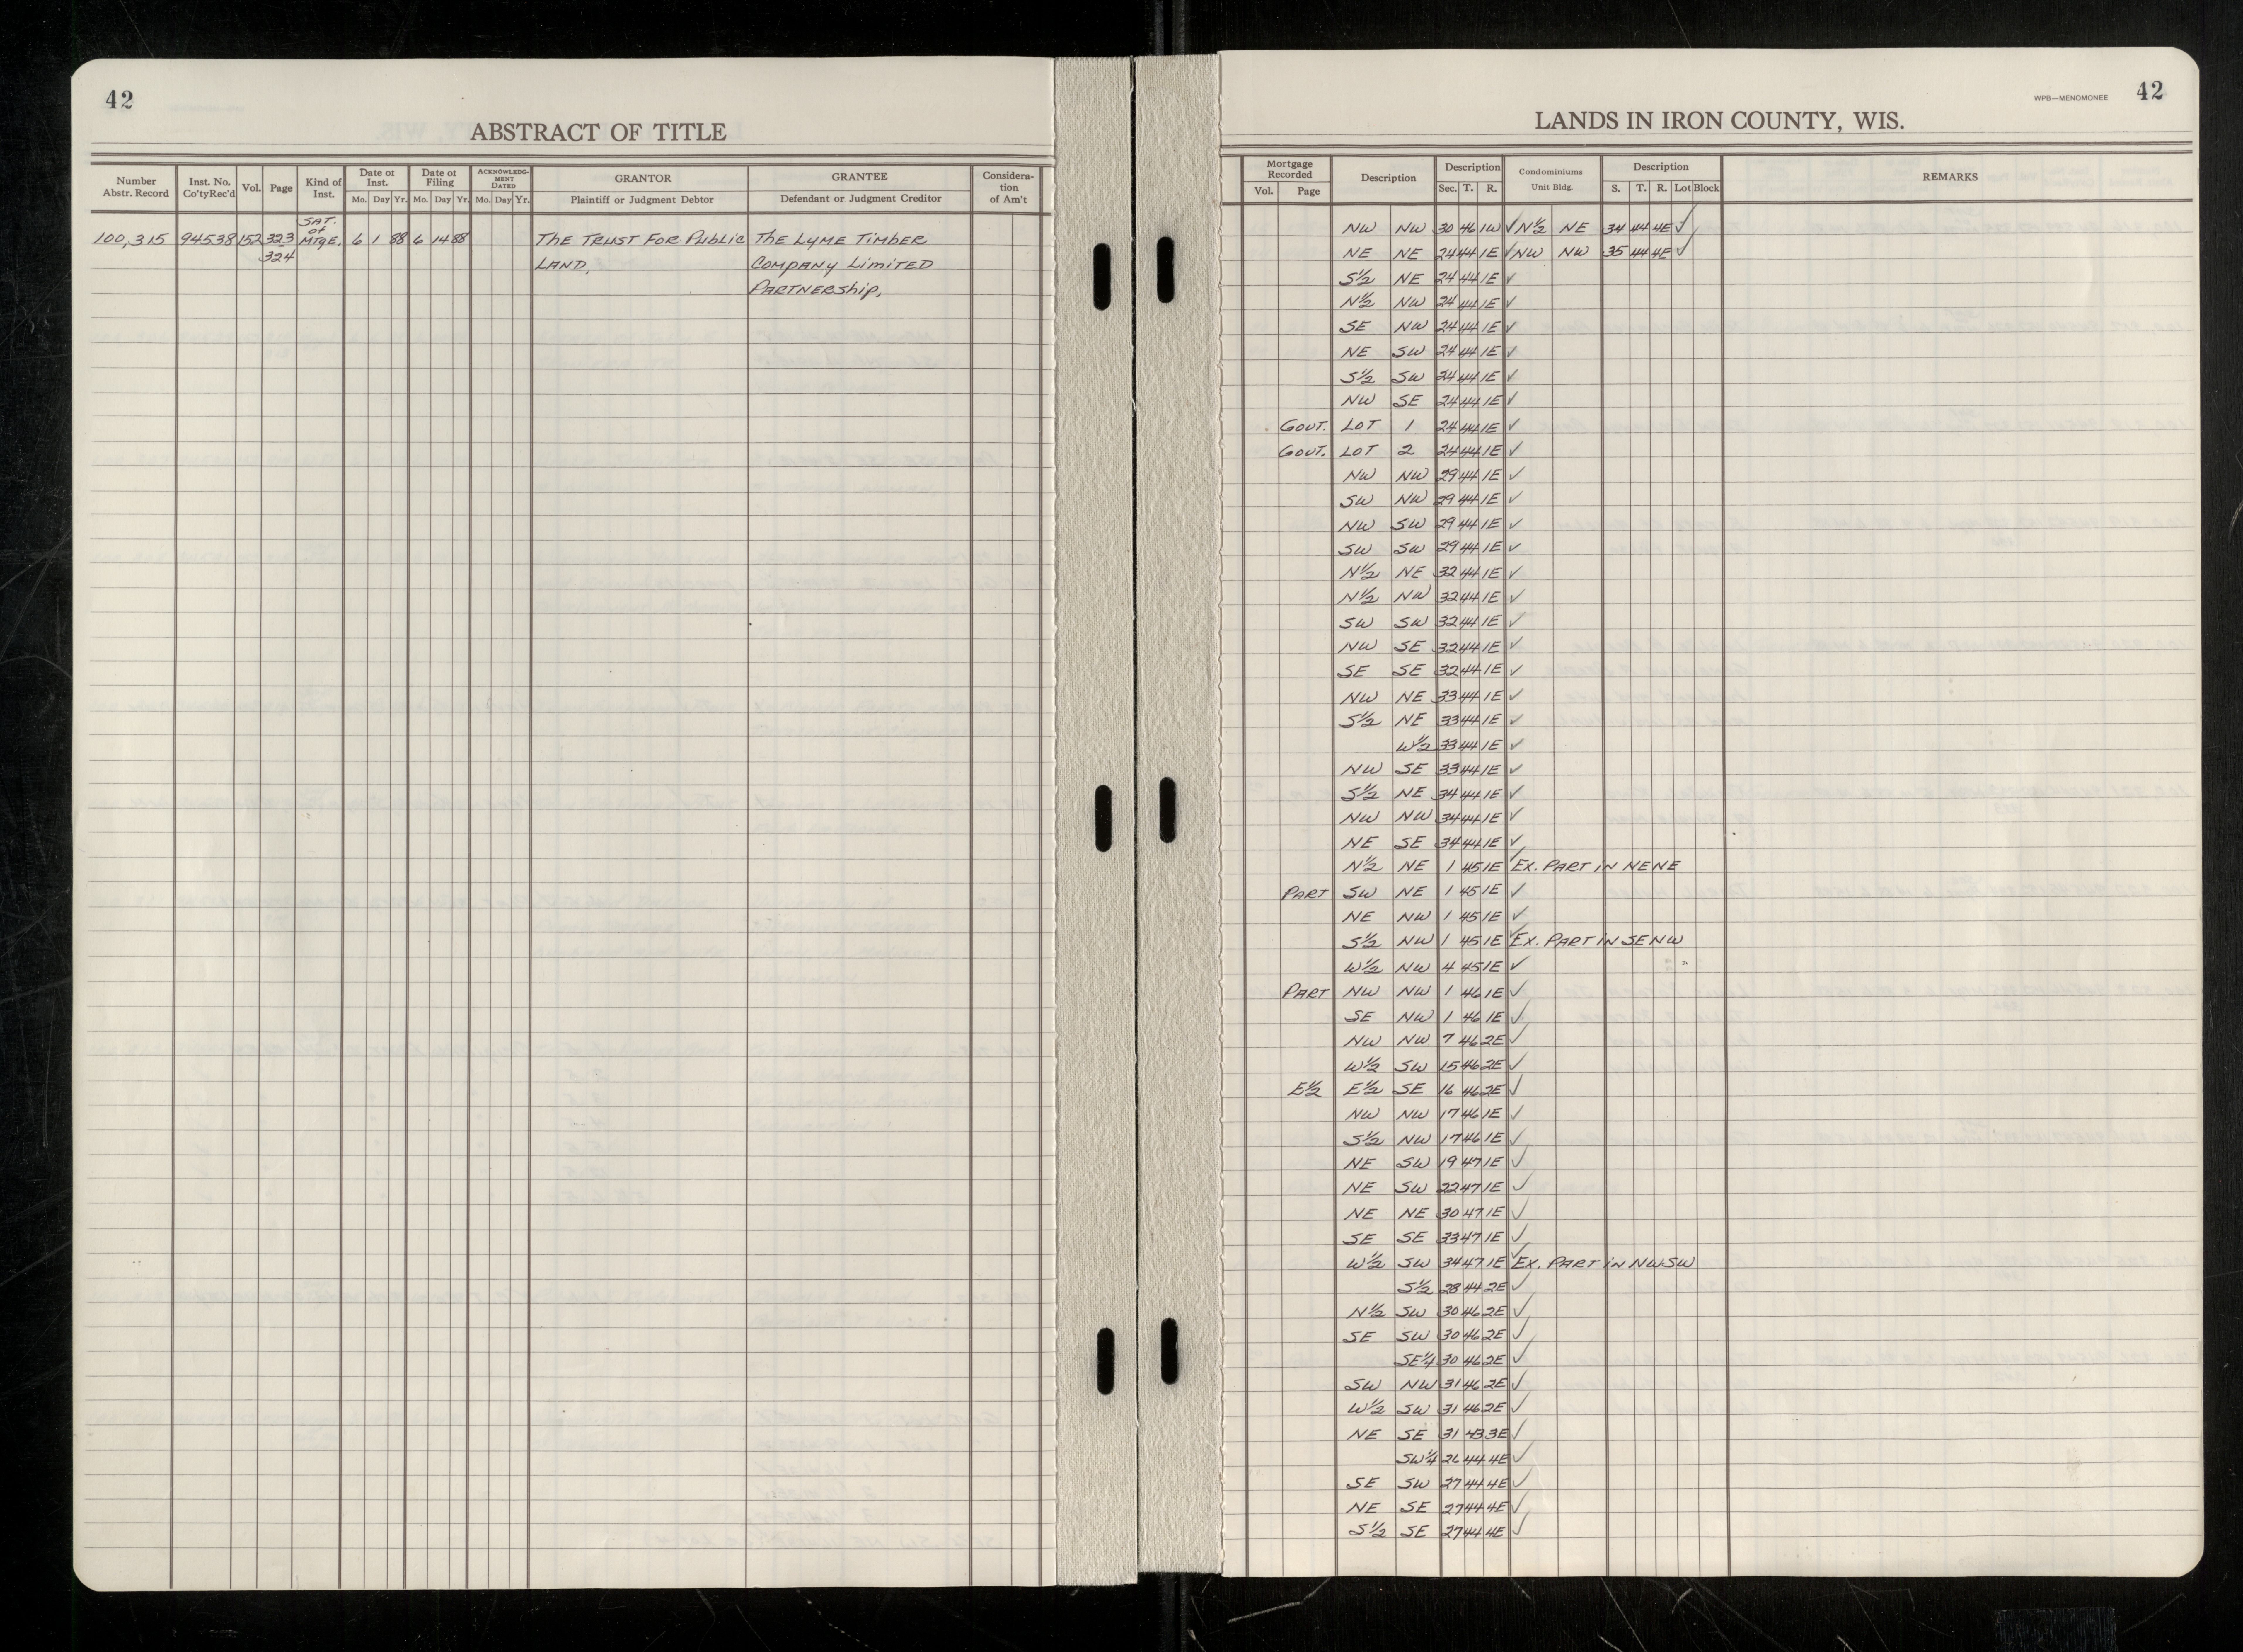 42
ABSTRACT OF TITLE
Number Abstr. Record | Inst. No. Co'tyRec'd | Vol. | Page | Kind of Inst. | Date of Inst. Mo. Day Yr. | Date of Filing Mo. Day Yr. | ACKNOWLEDG-MENT DATED Mo. Day Yr. | GRANTOR Plaintiff or Judgment Debtor | GRANTEE Defendant or Judgment Creditor | Considera-tion of Am't
SAT.
of
100,315 94538 152 323 MTGE. 6 1 88 6 14 88 THE TRUST FOR PUBLIC THE LYME TIMBER
324 LAND, COMPANY LIMITED
PARTNERSHIP,
WPB—MENOMONEE 42
LANDS IN IRON COUNTY, WIS.
Mortgage Recorded Vol. Page | Description | Description Sec. T. R. | Condominiums Unit Bldg. | Description S. T. R. Lot Block | REMARKS
NW NW 30 46 1W ✓ N½ NE 34 44 4E ✓
NE NE 24 44 1E ✓ NW NW 35 44 4E ✓
S½ NE 24 44 1E ✓
N½ NW 24 44 1E ✓
SE NW 24 44 1E ✓
NE SW 24 44 1E ✓
S½ SW 24 44 1E ✓
NW SE 24 44 1E ✓
GOVT. LOT 1 24 44 1E ✓
GOVT. LOT 2 24 44 1E ✓
NW NW 29 44 1E ✓
SW NW 29 44 1E ✓
NW SW 29 44 1E ✓
SW SW 29 44 1E ✓
N½ NE 32 44 1E ✓
N½ NW 32 44 1E ✓
SW SW 32 44 1E ✓
NW SE 32 44 1E ✓
SE SE 32 44 1E ✓
NW NE 33 44 1E ✓
S½ NE 33 44 1E ✓
W½ 33 44 1E ✓
NW SE 33 44 1E ✓
S½ NE 34 44 1E ✓
NW NW 34 44 1E ✓
NE SE 34 44 1E ✓
N½ NE 1 45 1E ✓ EX. PART IN NENE
PART SW NE 1 45 1E ✓
NE NW 1 45 1E ✓
S½ NW 1 45 1E ✓ EX. PART IN SENW
W½ NW 4 45 1E ✓
PART NW NW 1 46 1E ✓
SE NW 1 46 1E ✓
NW NW 7 46 2E ✓
W½ SW 15 46 2E ✓
E½ E½ SE 16 46 2E ✓
NW NW 17 46 1E ✓
S½ NW 17 46 1E ✓
NE SW 19 47 1E ✓
NE SW 22 47 1E ✓
NE NE 30 47 1E ✓
SE SE 33 47 1E ✓
W½ SW 34 47 1E ✓ EX. PART IN NWSW
S½ 28 44 2E ✓
N½ SW 30 46 2E ✓
SE SW 30 46 2E ✓
SE¼ 30 46 2E ✓
SW NW 31 46 2E ✓
W½ SW 31 46 2E ✓
NE SE 31 43 3E ✓
SW¼ 26 44 4E ✓
SE SW 27 44 4E ✓
NE SE 27 44 4E ✓
S½ SE 27 44 4E ✓